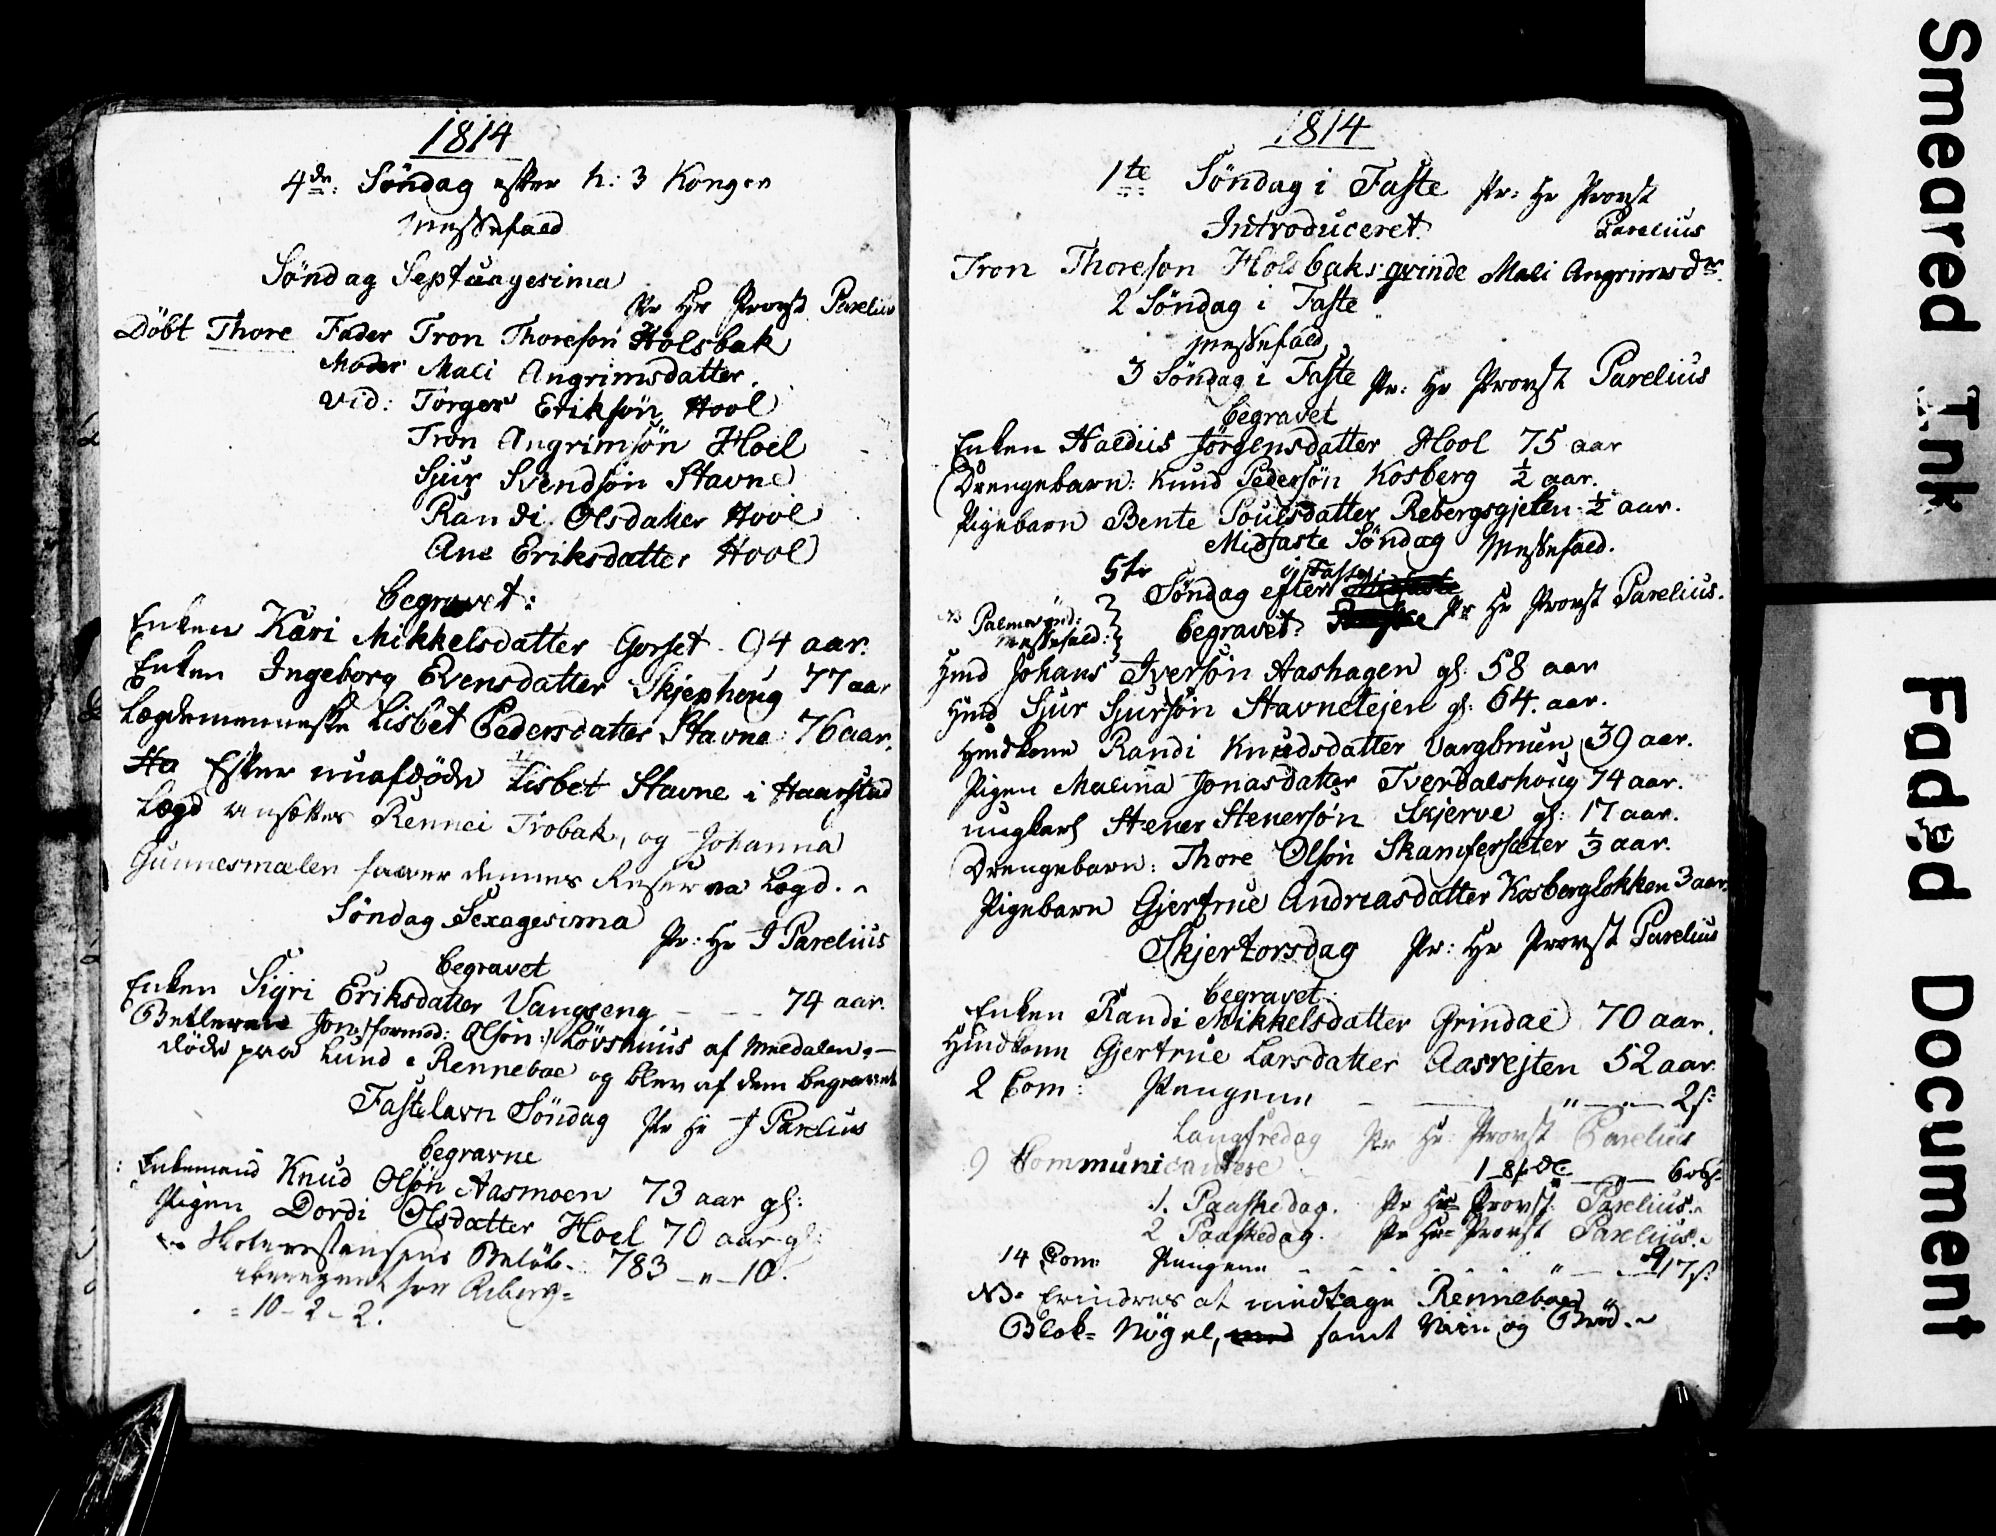 1814
4de: Søndag efter h: 3 Konger
Messefald
Søndag Septuagesima
Pr Hr Provst Parelius
Döbt Thore Fader Tron Thoresön Holsbak
Moder Mali Angrimsdatter.
Vid: Törger Eriksön Hool
Tron Angrimsön Hoel
Sjur Svendsön Stavne
Randi Olsdatter Hool
Ane Eriksdatter Hool
begravet:
Enken Kari Mikkelsdatter Gorset 94 aar.
Enken Ingeborg Evensdatter Skjephoug 77 aar
Lægdemenneske Lisbet Pedersdatter Stavne 76 aar.
Ha Efter nu afdøde Lisbet Stavne i Haarstad
Lægd ansættes Rennei Trobak, og Johanna
Gunnesmælen faaer dennes Reserva Lægd.
Söndag Sexagesima
Pr: Hr J Parelius
begravet
Enken Sigri Eriksdatter Vangseng - - - 74 aar.
Betleren Jon /: formod: Olsön :/ Lövshuus af Meldalen,
döde paa Lund i Renneboe og blev af dem begravet
Fastelavn Söndag Pr Hr J Parelius
begravne
Enkemand Knud Olsön Aasmoen 73 aar gl:
Pigen Dordi Olsdatter Hoel 70 aar gl:
Skolerestancens Belöb 783 - " - 10.
iberegnet for Riberg
= 10 - 2 - 2.
1814
1te Søndag i Faste Pr: Hr Provst
Parelius
Introduceret
Tron Thoresøn Holsbaks qvinde Mali Angrimsdr.
2 Söndag i Faste
Messefald
3 Söndag i Faste Pr: Hr Provst Parelius
begravet
Enken Haldiis Jörgensdatter Hool 75 aar
Drengebarn: Knud Pedersön Kosberg ½ aar.
Pigebarn Bente Poulsdatter Rebergsgjelen ½ aar.
Midfaste Söndag Messefald.
5te
i Faste
Søndag efter Midfaste Pr Hr Provst Parelius.
NB Palmesönd:
Messefald:
begravet:
Hmd Johans Iversön Aashagen gl: 58 aar
Hmd Sjur Sjursön Stavnetejen gl: 64. aar.
Hmdkone Randi Knudsdatter Vargbruun 39 aar.
Pigen Malina Jonasdatter Tverdalshoug 74 aar.
ungkarl Stener Stenersön Skjerve gl: 17 aar.
Drengebarn: Thore Olsön Skamfersæter ⅓ aar.
Pigebarn Gjertrue Andreasdatter Kosberglökken 3 aar.
Skjertorsdag Pr: Hr Provst Parelius
begravet:
Enken Randi Mikkelsdatter Grindal 70 aar.
Hmdkone Gjertrue Larsdatter Aasrejten 52 aar
2 Com: Pengene - - " - " - 2 s:
Langfredag Pr Hr: Provst Parelius
9 Communicantere
1. Paaskedag. Pr Hr Provst Parelius.
2 Paaskedag. Pr Hr Provst Parelius.
14 Com Pengene - - - - - - 17 s:
NB. Erindres at medtage Renneboe
Blok-Nögel, med samt Viin og Bröd.
Smeared Ink
Faded Document